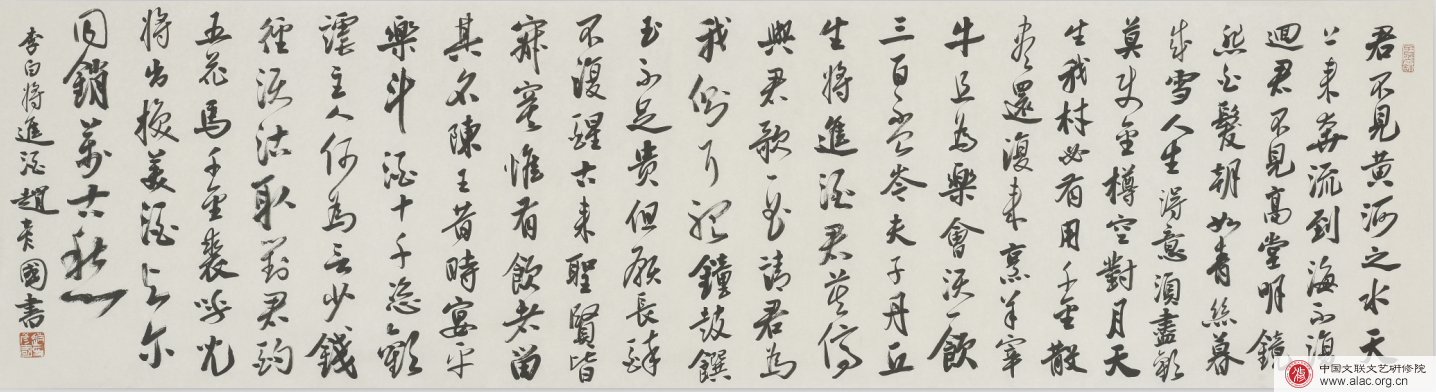 君不見黃河之水天
上來奔流到海不復
迴君不見高堂明鏡
悲白髮朝如青絲暮
成雪人生得意須盡歡
莫使金樽空對月天
生我材必有用千金散
盡還復來烹羊宰
牛且為樂會須一飲
三百杯岑夫子丹丘
生將進酒君莫停
與君歌一曲請君為
我側耳聽鐘鼓饌
玉不足貴但願長醉
不復醒古來聖賢皆
寂寞惟有飲者留
其名陳王昔時宴平
樂斗酒十千恣歡
謔主人何為言少錢
徑須沽取對君酌
五花馬千金裘呼兒
將出換美酒與爾
同銷萬古愁
李白將進酒趙國書
中国文联文艺研修院
www.alac.org.cn